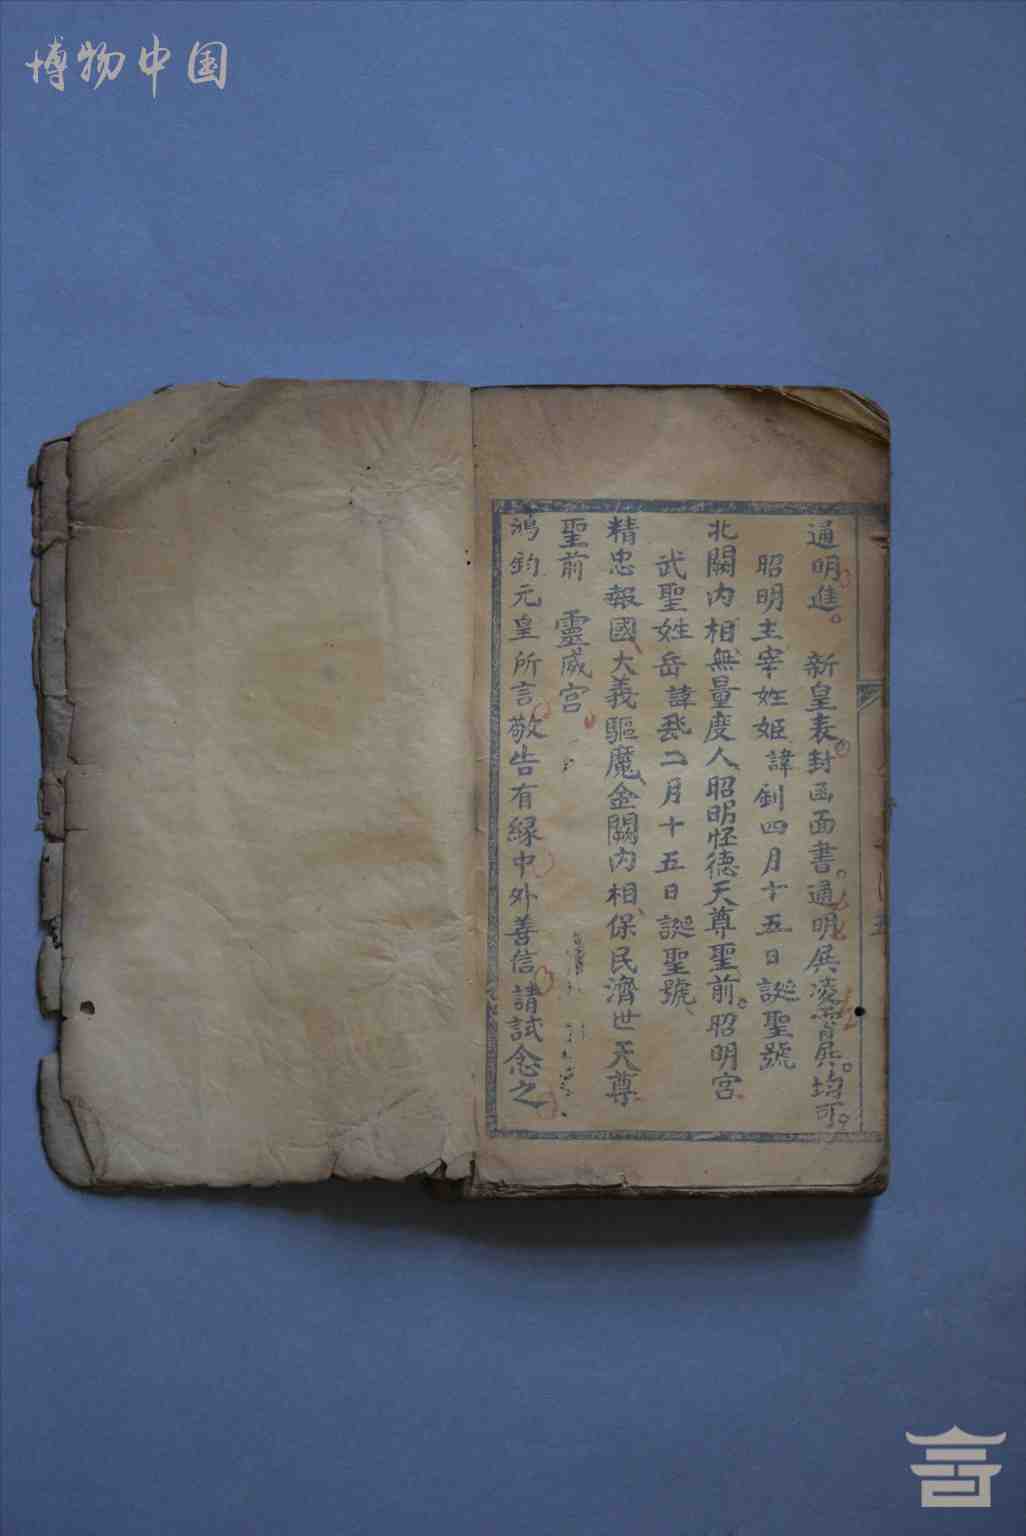 博物中国
通明進。 新皇表封函面書。通明殿凌霄殿。均可。
昭明主宰姓姬諱釗四月十五日誕聖號
北闕内相無量度人昭明怪德天尊聖前。昭明宫
武聖姓岳諱飛二月十五日誕聖號
精忠報國大義驅魔金闕内相保民濟世天尊
聖前 靈威宫
鴻鈞元皇所言敬告有緣中外善信請試念之
五